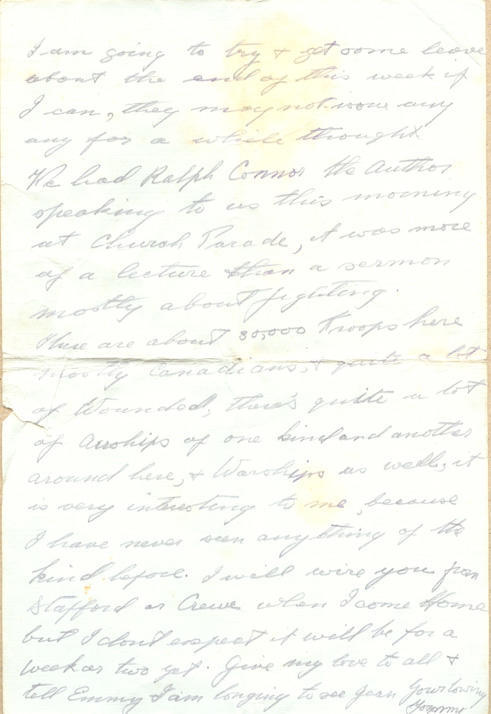 I am going to try & get some leave
about the end of this week if
I can, they may not issue any
any for a while though.
We had Ralph Connor the Author
speaking to us this morning
at Church Parade, it was more
of a lecture than a sermon
mostly about fighting.
There are about 30,000 troops here
mostly Canadians, & quite a lot
of Wounded, there's quite a lot
of airships of one kind and another
around here, & Warships as well, it
is very interesting to me, because
I have never seen anything of the
kind before. I will wire you from
Stafford or Crewe when I come Home
but I dont expect it will be for a
week or two yet. Give my love to all &
tell Emmy I am longing to see Jean Your loving